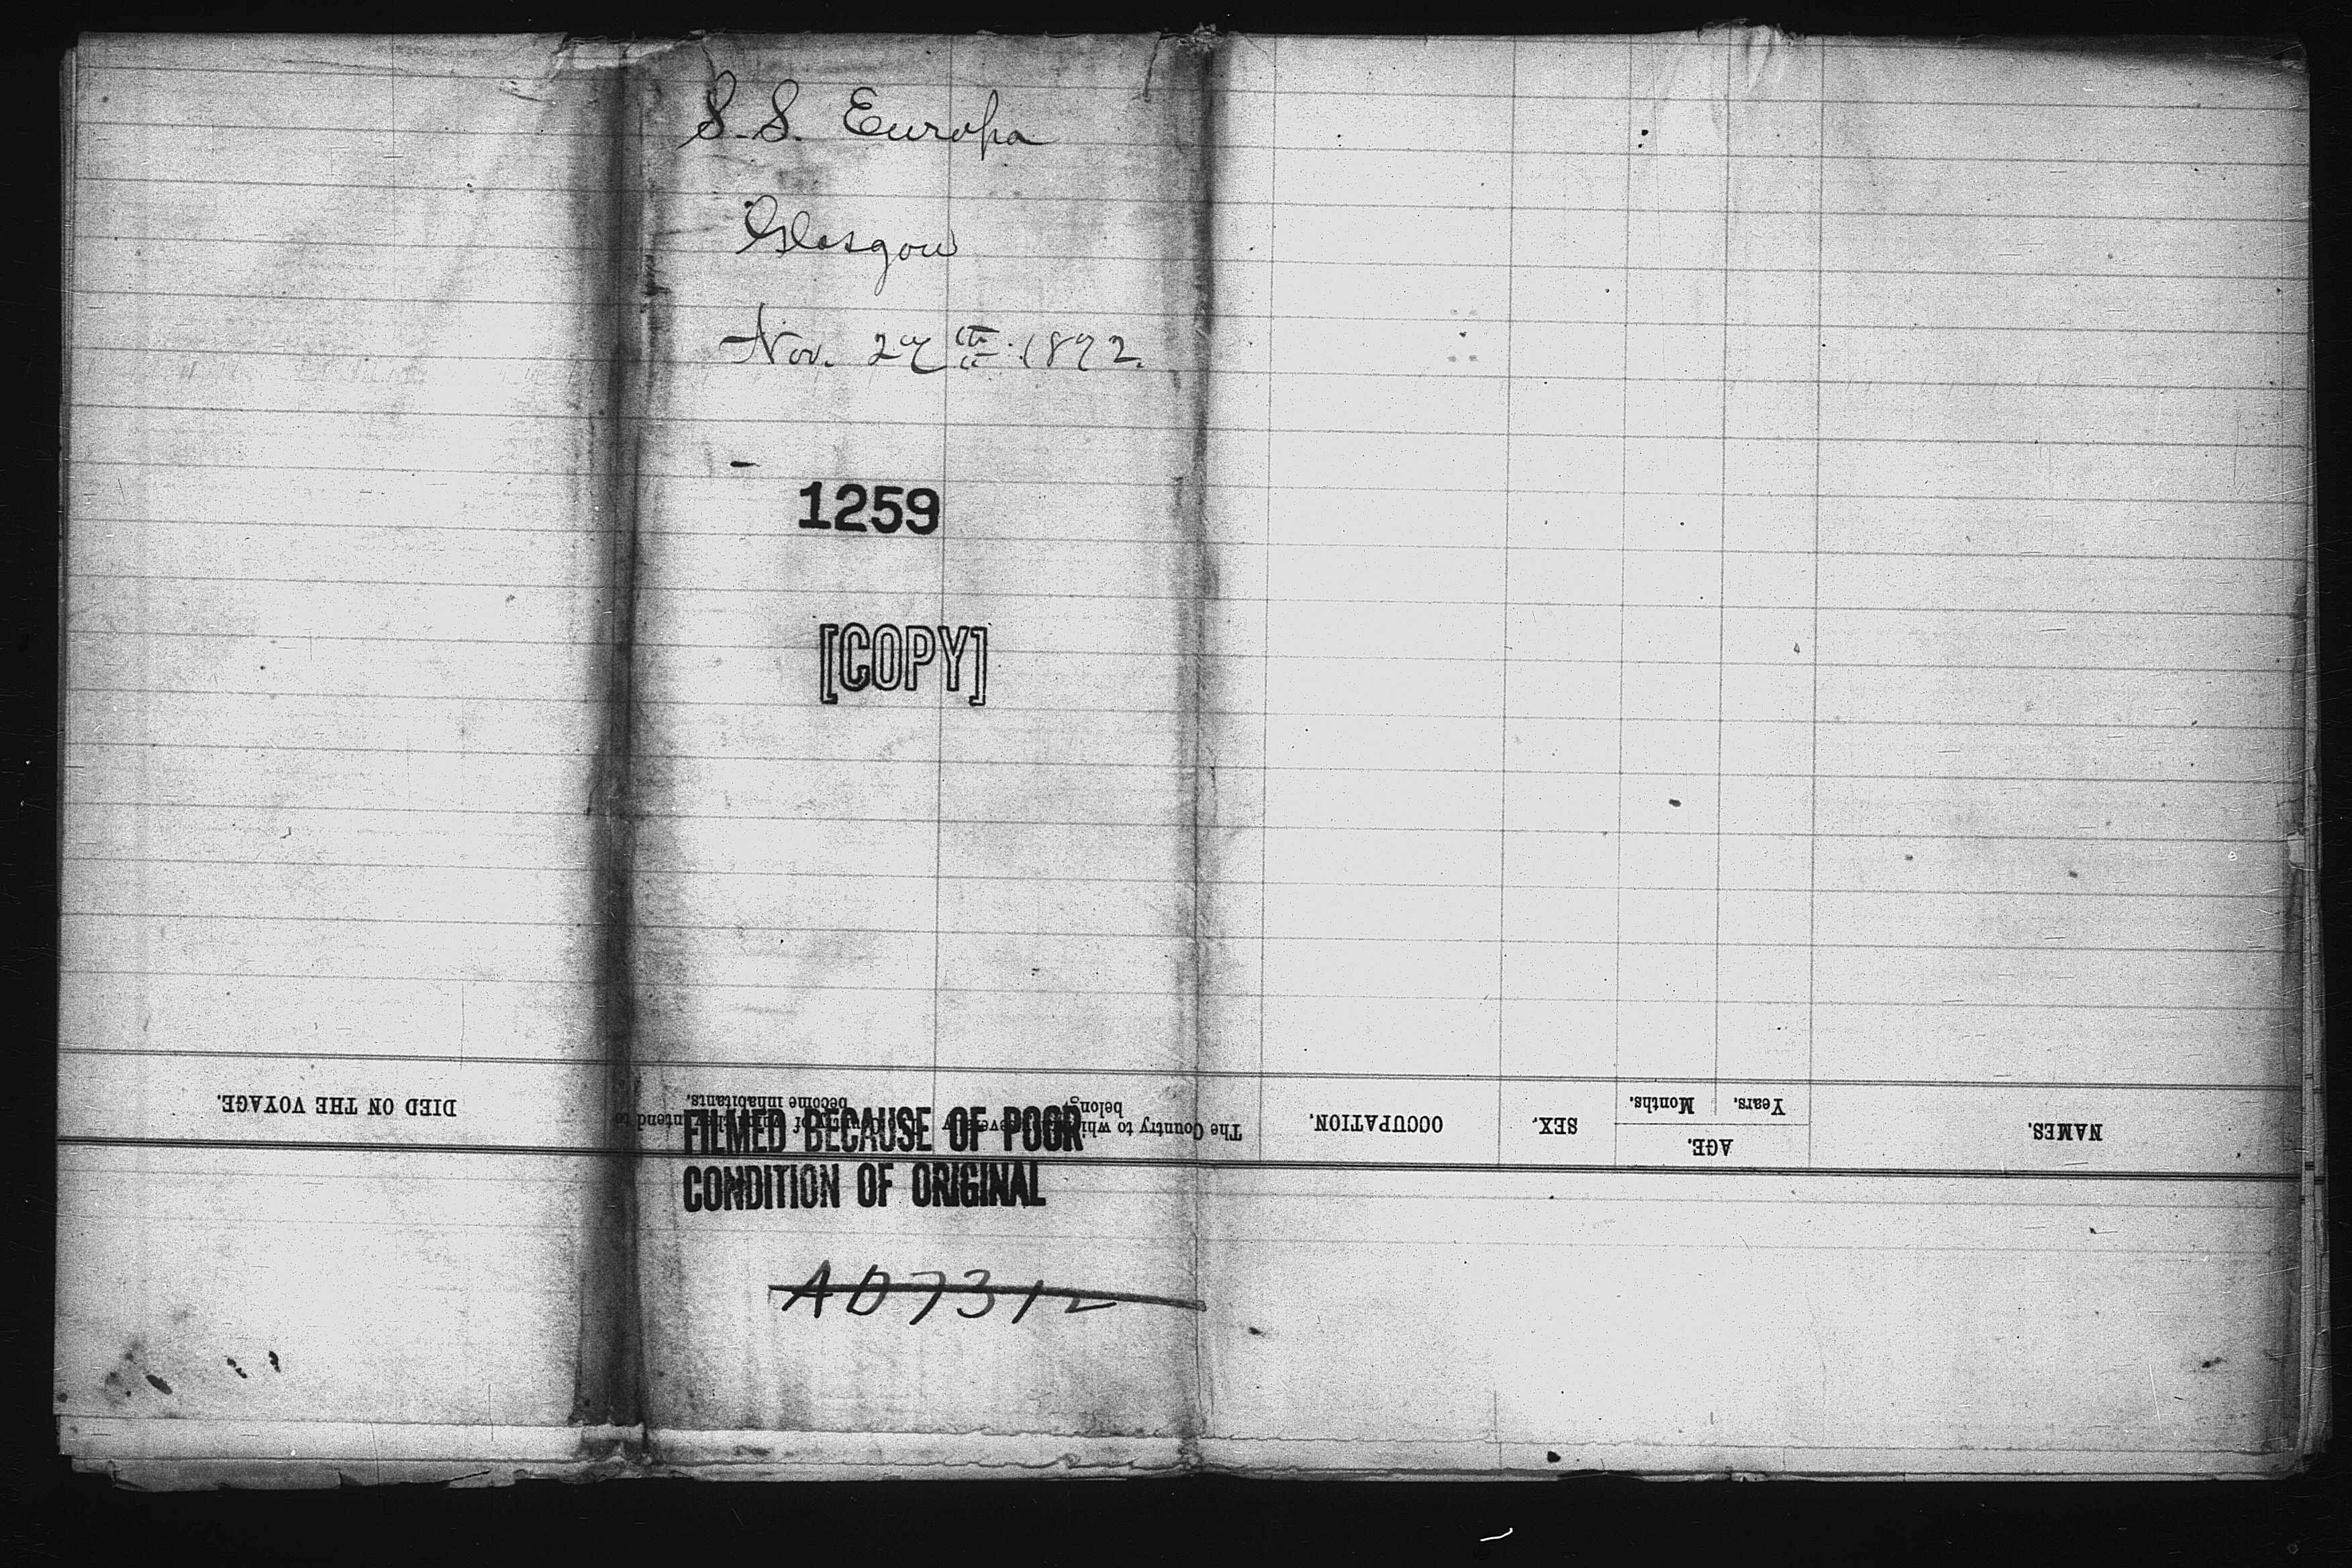 S.S. Europa
Glasgow
Nov. 27th 1872.
1259
[COPY]
FILMED BECAUSE OF POOR
CONDITION OF ORIGINAL
AD7312
NAMES.
AGE.
Years.
Months.
SEX.
OCCUPATION.
The Country to which they severally
belong.
The Country of which they intend to
become inhabitants.
DIED ON THE VOYAGE.